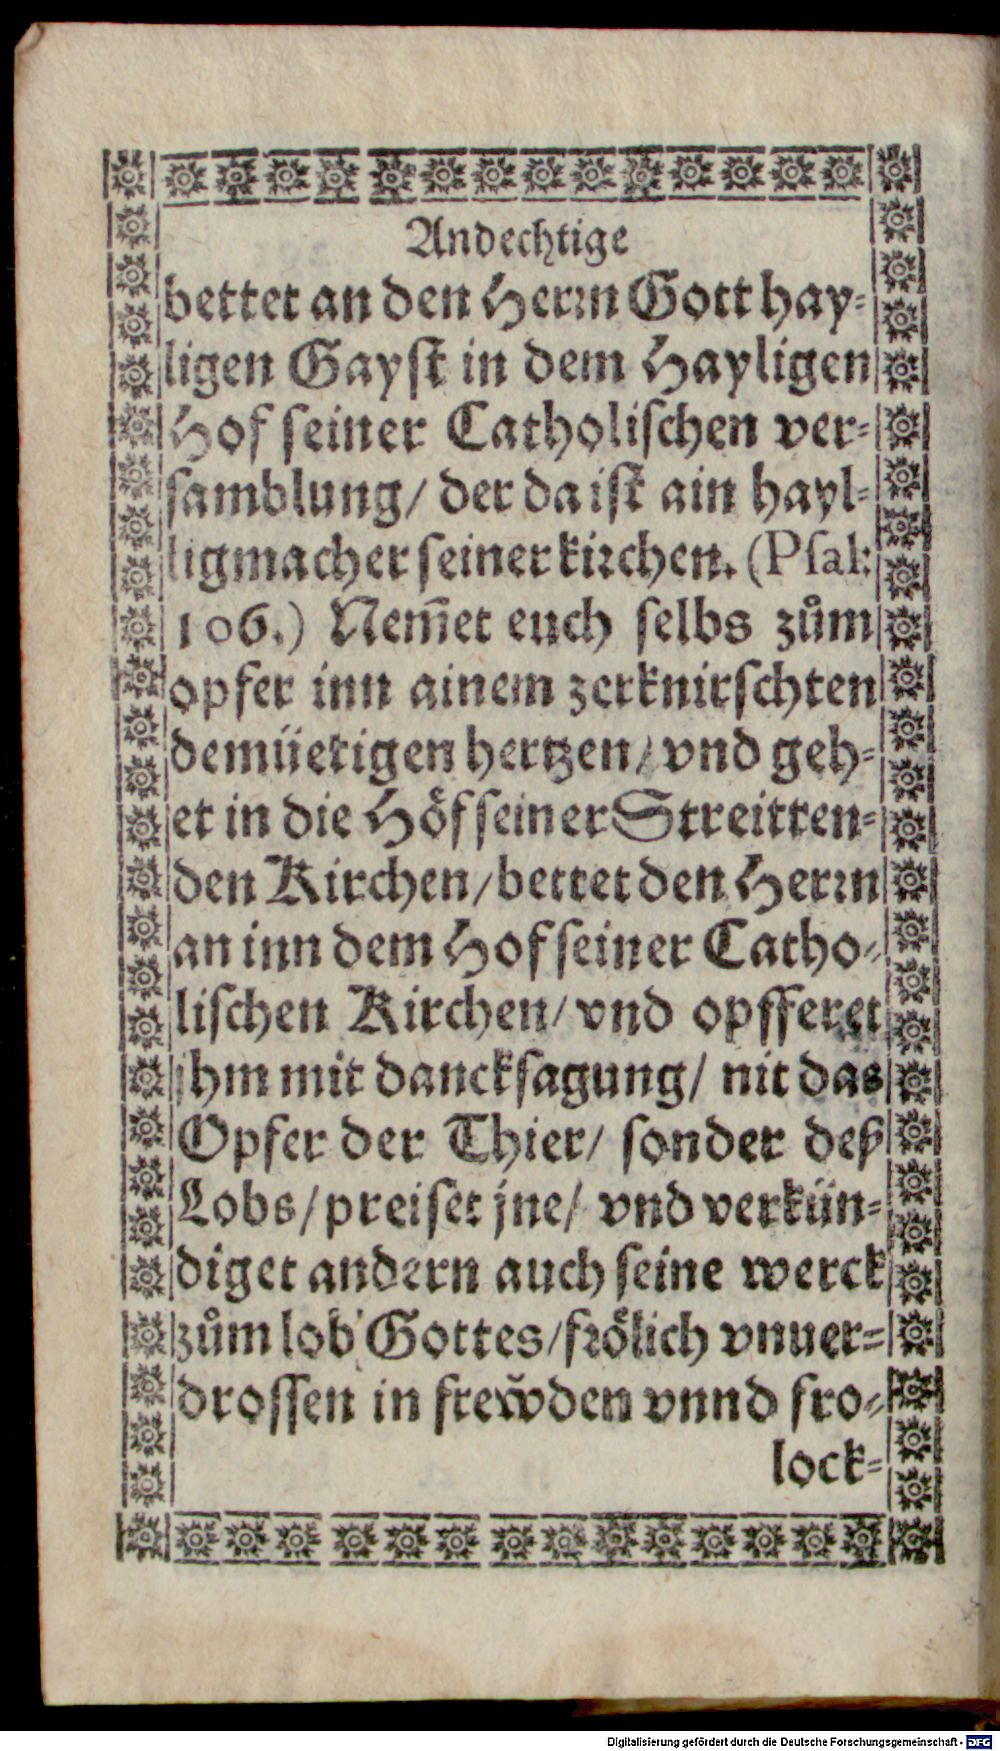 Andechtige
bettet an den Herꝛn Gott hay-
ligen Gayſt in dem Hayligen
Hof ſeiner Catholiſchen ver-
ſamblung/ der da iſt ain hayl-
ligmacher ſeiner kiꝛchen. (Pſal:
106.) Nem̃et euch ſelbs zům
opfer inn ainem zerknirſchten
demüetigen hertzen/ vnd geh-
et in die Höf ſeiner Streitten-
den Kirchen/ bettet den Herꝛn
an inn dem Hof ſeiner Catho-
liſchen Kirchen/ vnd opfferet
jhm mit danckſagung/ nit das
Opfer der Thier/ ſonder deß
Lobs/ preiſet jne/ vnd verkün-
diget andern auch ſeine werck
zům lob Gottes/ fꝛölich vnuer-
droſſen in frew̆den vnnd fro-
lock-
Digitalisierung gefördert durch die Deutsche Forschungsgemeinschaft - DFG